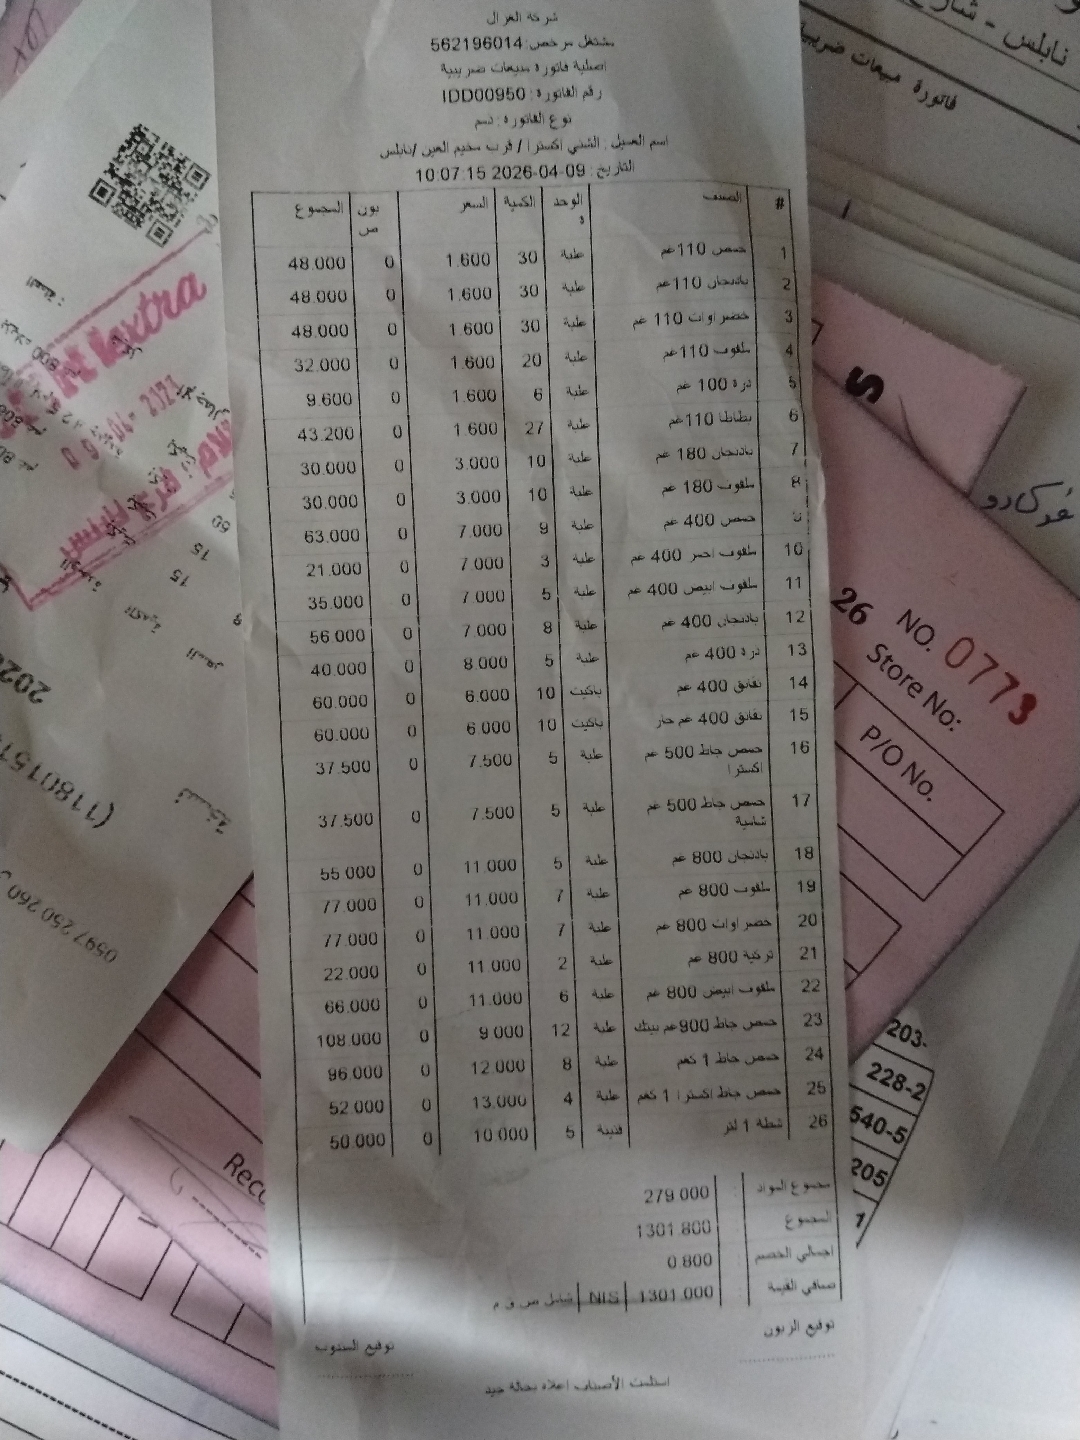 شركة الغزال
مشتغل مرخص: 562196014
اصلية فاتورة مبيعات ضريبية
رقم الفاتورة: IDD00950
نوع الفاتورة: ذمم
اسم العميل: الشني اكسترا / قرب مخيم العين /نابلس
التاريخ: 09-04-2026 10:07:15
# الصنف الوحدة الكمية السعر بونص المجموع
1 حمص 110غم علبة 30 1.600 0 48.000
2 باذنجان 110غم علبة 30 1.600 0 48.000
3 خضراوات 110 غم علبة 30 1.600 0 48.000
4 ملفوف 110غم علبة 20 1.600 0 32.000
5 ذرة 100 غم علبة 6 1.600 0 9.600
6 بطاطا 110غم علبة 27 1.600 0 43.200
7 باذنجان 180 غم علبة 10 3.000 0 30.000
8 ملفوف 180 غم علبة 10 3.000 0 30.000
9 حمص 400 غم علبة 9 7.000 0 63.000
10 ملفوف احمر 400 غم علبة 3 7.000 0 21.000
11 ملفوف ابيض 400 غم علبة 5 7.000 0 35.000
12 باذنجان 400 غم علبة 8 7.000 0 56.000
13 ذرة 400 غم علبة 5 8.000 0 40.000
14 نقانق 400 غم باكيت 10 6.000 0 60.000
15 نقانق 400 غم حار باكيت 10 6.000 0 60.000
16 حمص جاط 500 غم اكسترا علبة 5 7.500 0 37.500
17 حمص جاط 500 غم شامية علبة 5 7.500 0 37.500
18 باذنجان 800 غم علبة 5 11.000 0 55.000
19 ملفوف 800 غم علبة 7 11.000 0 77.000
20 خضراوات 800 غم علبة 7 11.000 0 77.000
21 تركية 800 غم علبة 2 11.000 0 22.000
22 ملفوف ابيض 800 غم علبة 6 11.000 0 66.000
23 حمص جاط 900غم بيتك علبة 12 9.000 0 108.000
24 حمص جاط 1 كغم علبة 8 12.000 0 96.000
25 حمص جاط اكسترا 1 كغم علبة 4 13.000 0 52.000
26 شطة 1 لتر قنينة 5 10.000 0 50.000
مجموع المواد 279.000
المجموع 1301.800
اجمالي الخصم 0.800
صافي القيمة 1301.000 NIS شامل ض.ق.م
توقيع الزبون
توقيع المندوب
استلمت الأصناف اعلاه بحالة جيد
نابلس
فاتورة مبيعات ضريبية
26 NO. 0773
Store No:
P/O No.
203-
228-2
540-5
205
1
0597 250 260